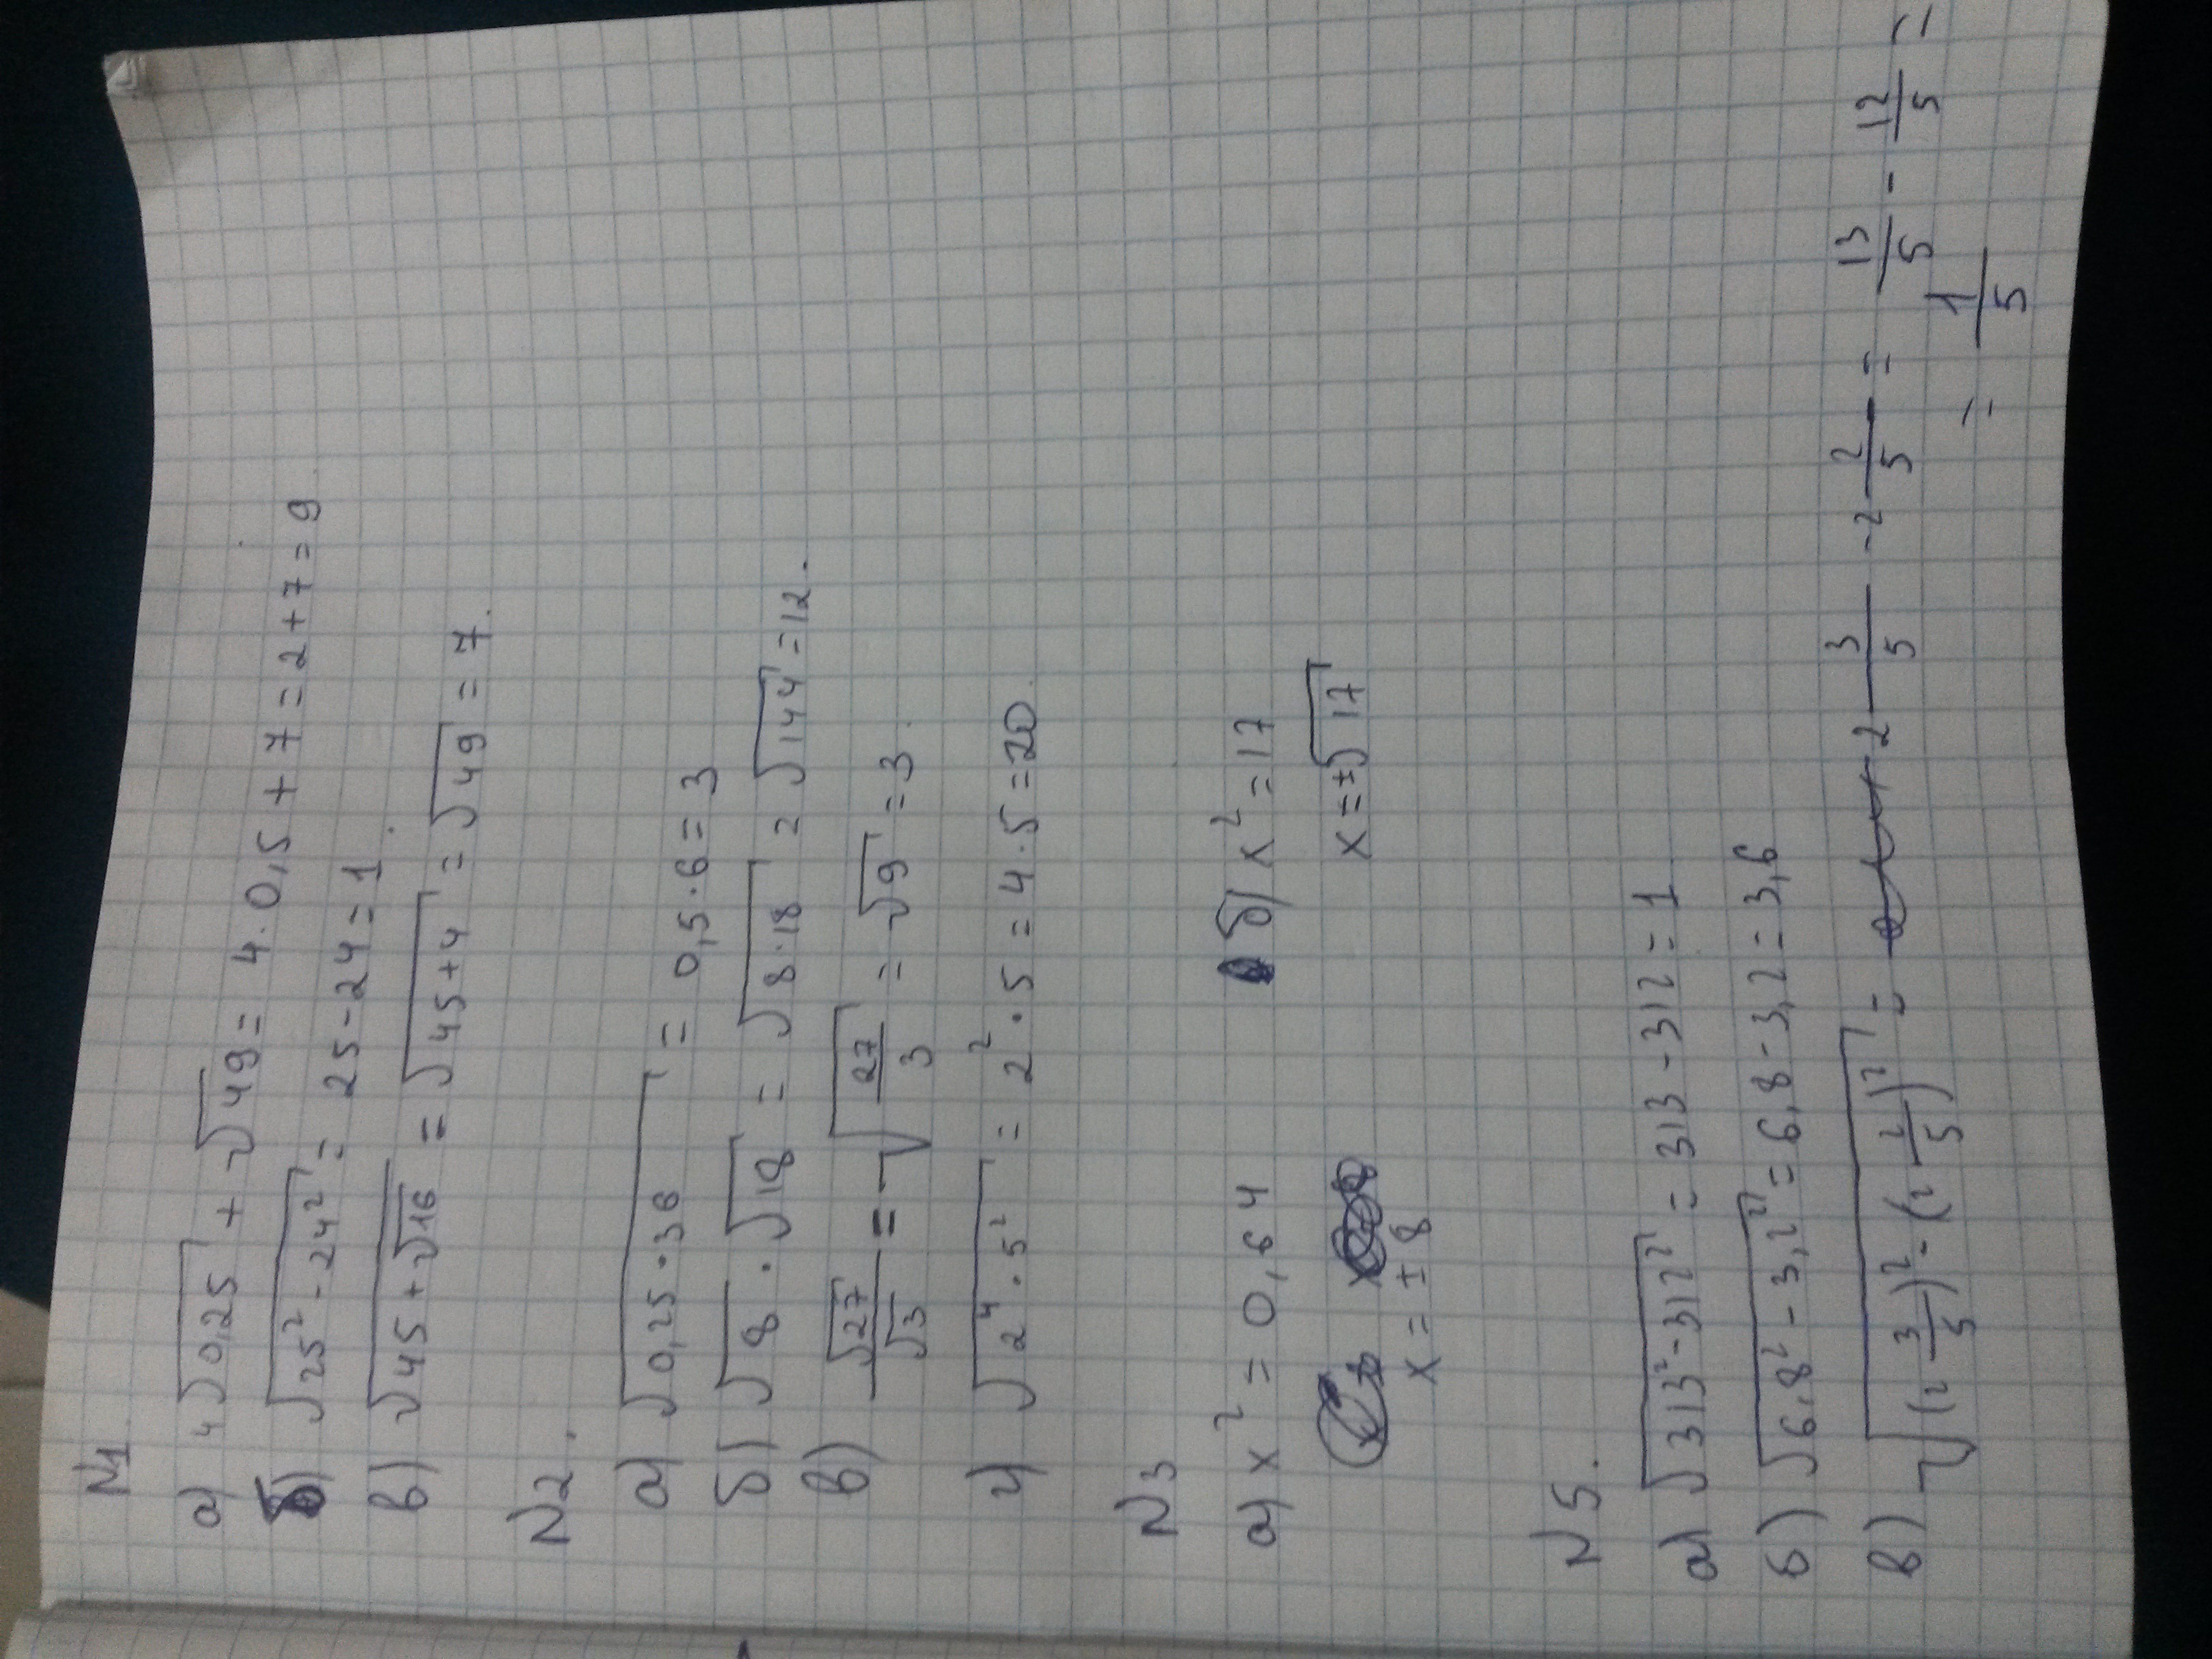 N1
а) 4√0,25 + √49 = 4·0,5+7=2+7=9
б) √25²-24² = 25-24=1.
в) √45+√16 = √45+4 = √49 = 7.
N2.
а) √0,25·36 = 0,5·6=3
б) √8·√18 = √8·18 = √144 = 12.
в) √27/√3 = √27/3 = √9 = 3.
г) √2⁴·5² = 2²·5=4·5=20
N3
а) x² = 0,64 б) x²=17
x = ± 8 x=±√17
N5.
а) √313²-312² = 313-312=1
б) √6,8²-3,2² = 6,8-3,2=3,6
в) √(2 3/5)²-(2 2/5)² = 2 3/5 - 2 2/5 = 13/5 - 12/5 =
= 1/5